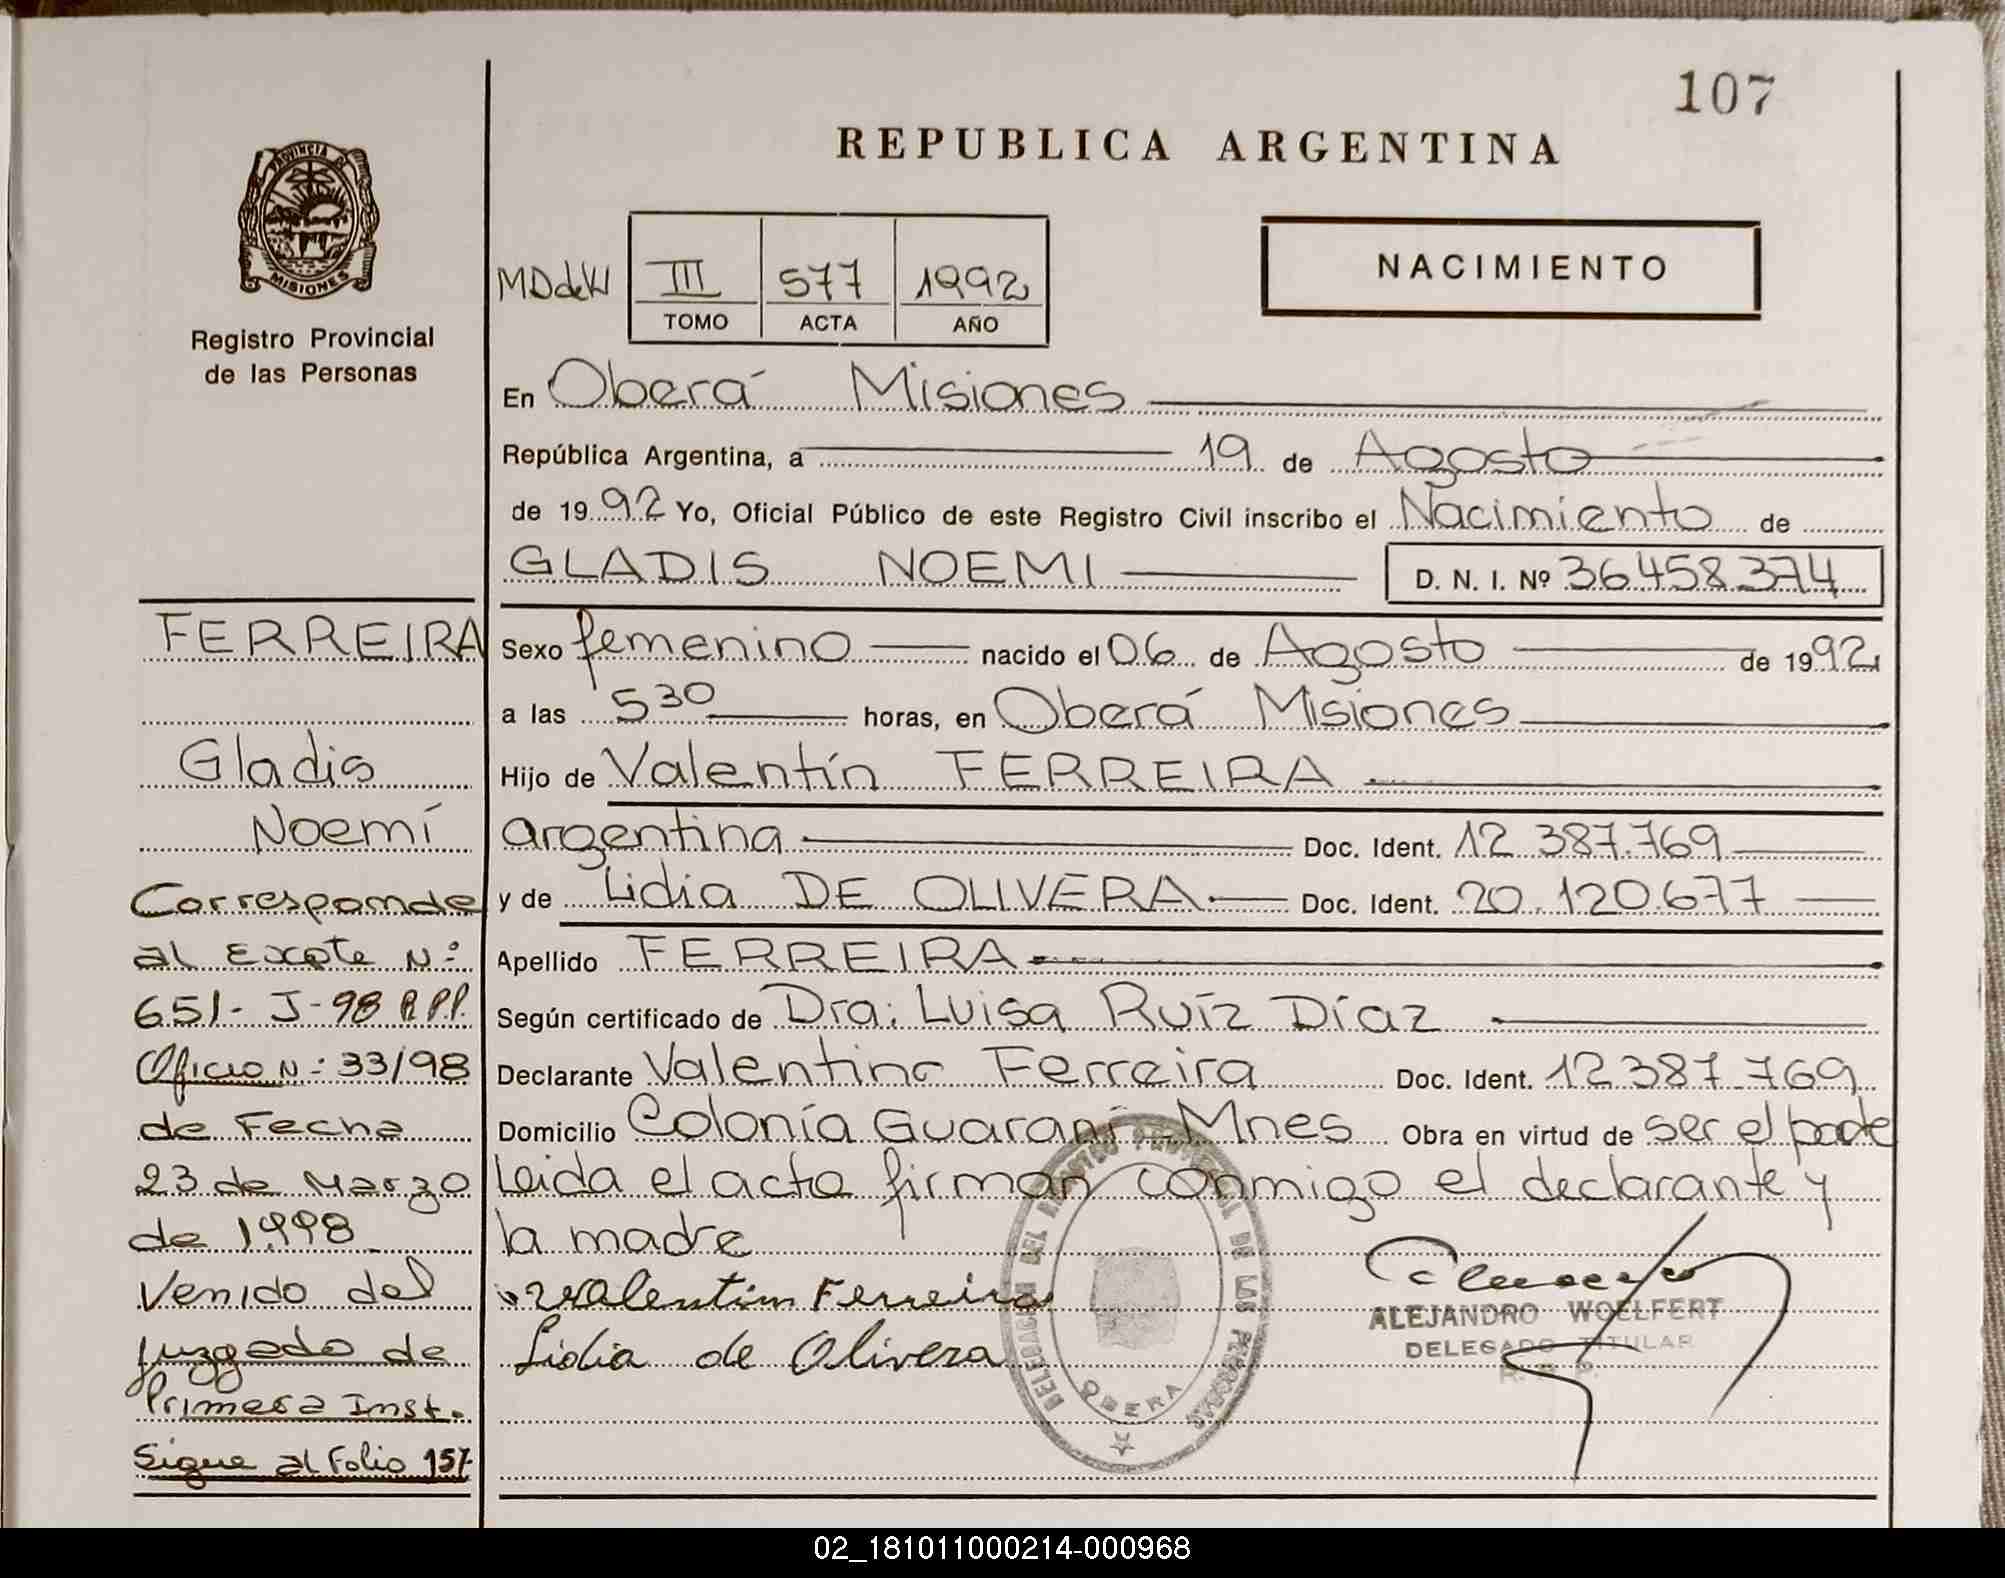 107
REPUBLICA ARGENTINA
PROVINCIA DE
MISIONES
Registro Provincial
de las Personas
NACIMIENTO
MDdeW III 577 1992
TOMO ACTA AÑO
En Oberá Misiones
República Argentina, a 19 de Agosto
de 1992 Yo, Oficial Público de este Registro Civil inscribo el Nacimiento de
GLADIS NOEMI D. N. I. Nº 36.458.374
FERREIRA
Gladis
Noemí
Corresponde
al Expte N:
651- J-98 R.P.P.
Oficio N: 33/98
de Fecha
23 de Marzo
de 1998
Venido del
Juzgado de
Primera Inst.
Sigue al Folio 157
Sexo femenino nacido el 06 de Agosto de 1992
a las 5 30 horas, en Oberá Misiones
Hijo de Valentín FERREIRA
argentina Doc. Ident. 12.387.769
y de Lidia DE OLIVERA Doc. Ident. 20.120.677
Apellido FERREIRA
Según certificado de Dra: Luisa Ruíz Díaz
Declarante Valentino Ferreira Doc. Ident. 12.387.769
Domicilio Colonia Guaraní Mnes Obra en virtud de ser el padre
Leida el acta firman conmigo el declarante y
la madre
Valentin Ferreira
Lidia de Olivera
DELEGACION DEL REGISTRO PROVINCIAL DE LAS PERSONAS
OBERA
ALEJANDRO WOELFERT
DELEGADO TITULAR
R. P. P.
02_181011000214-000968